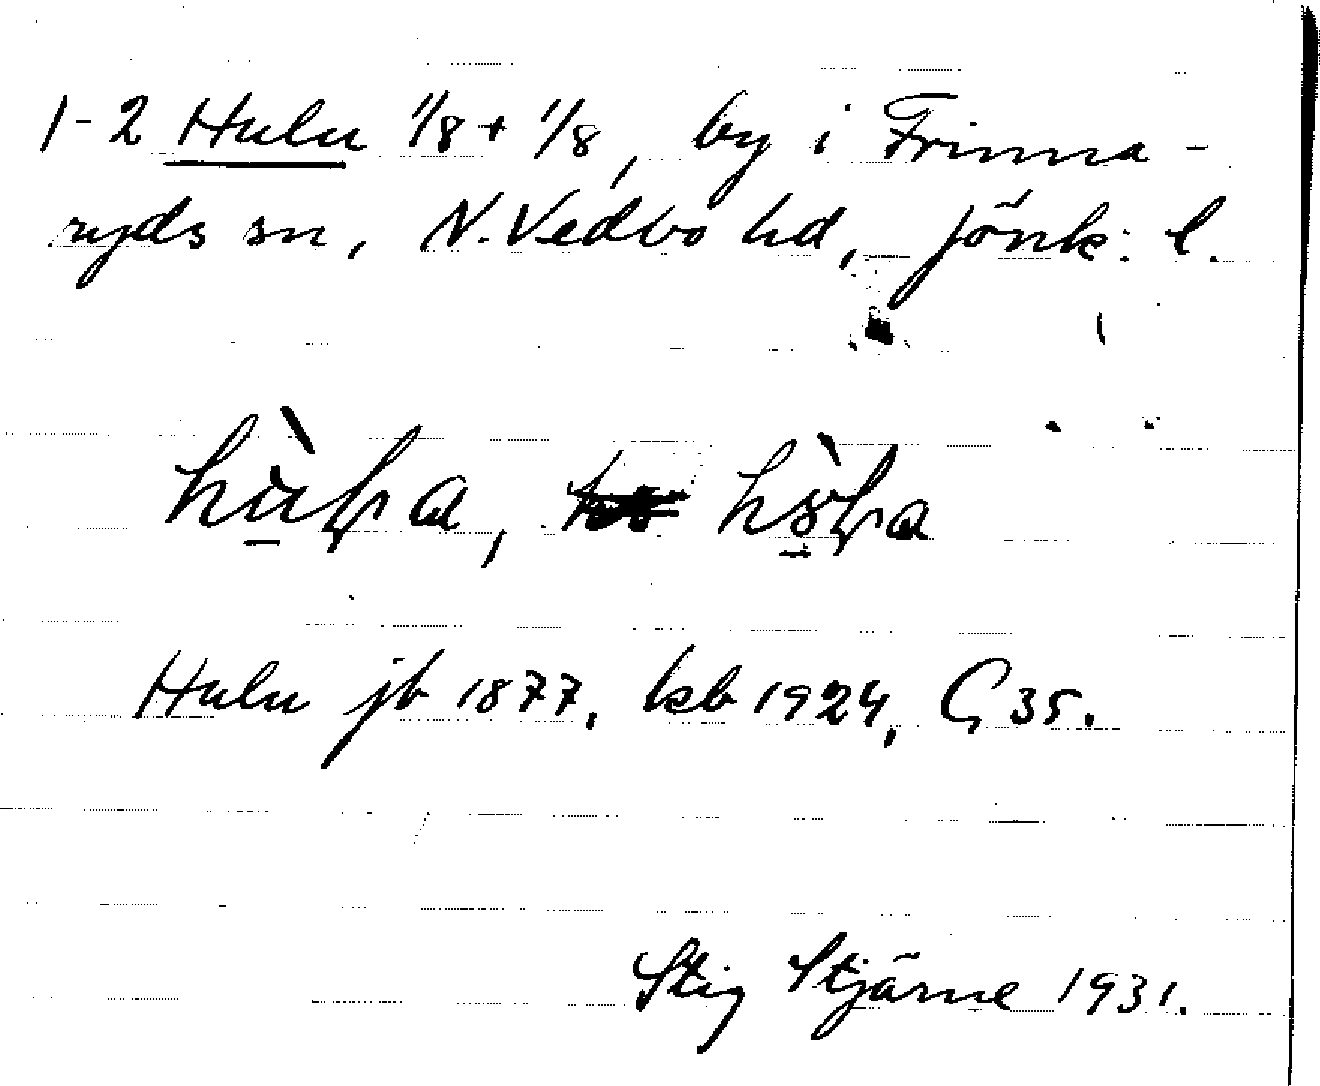 1-2 Hulu 1/8 + 1/8, by i Frinna-
ryds sn, N. Vedbo hd, Jönk. l.
Hulu jb 1877, ksb 1924, G 35.
Stig Stjärne 1931.